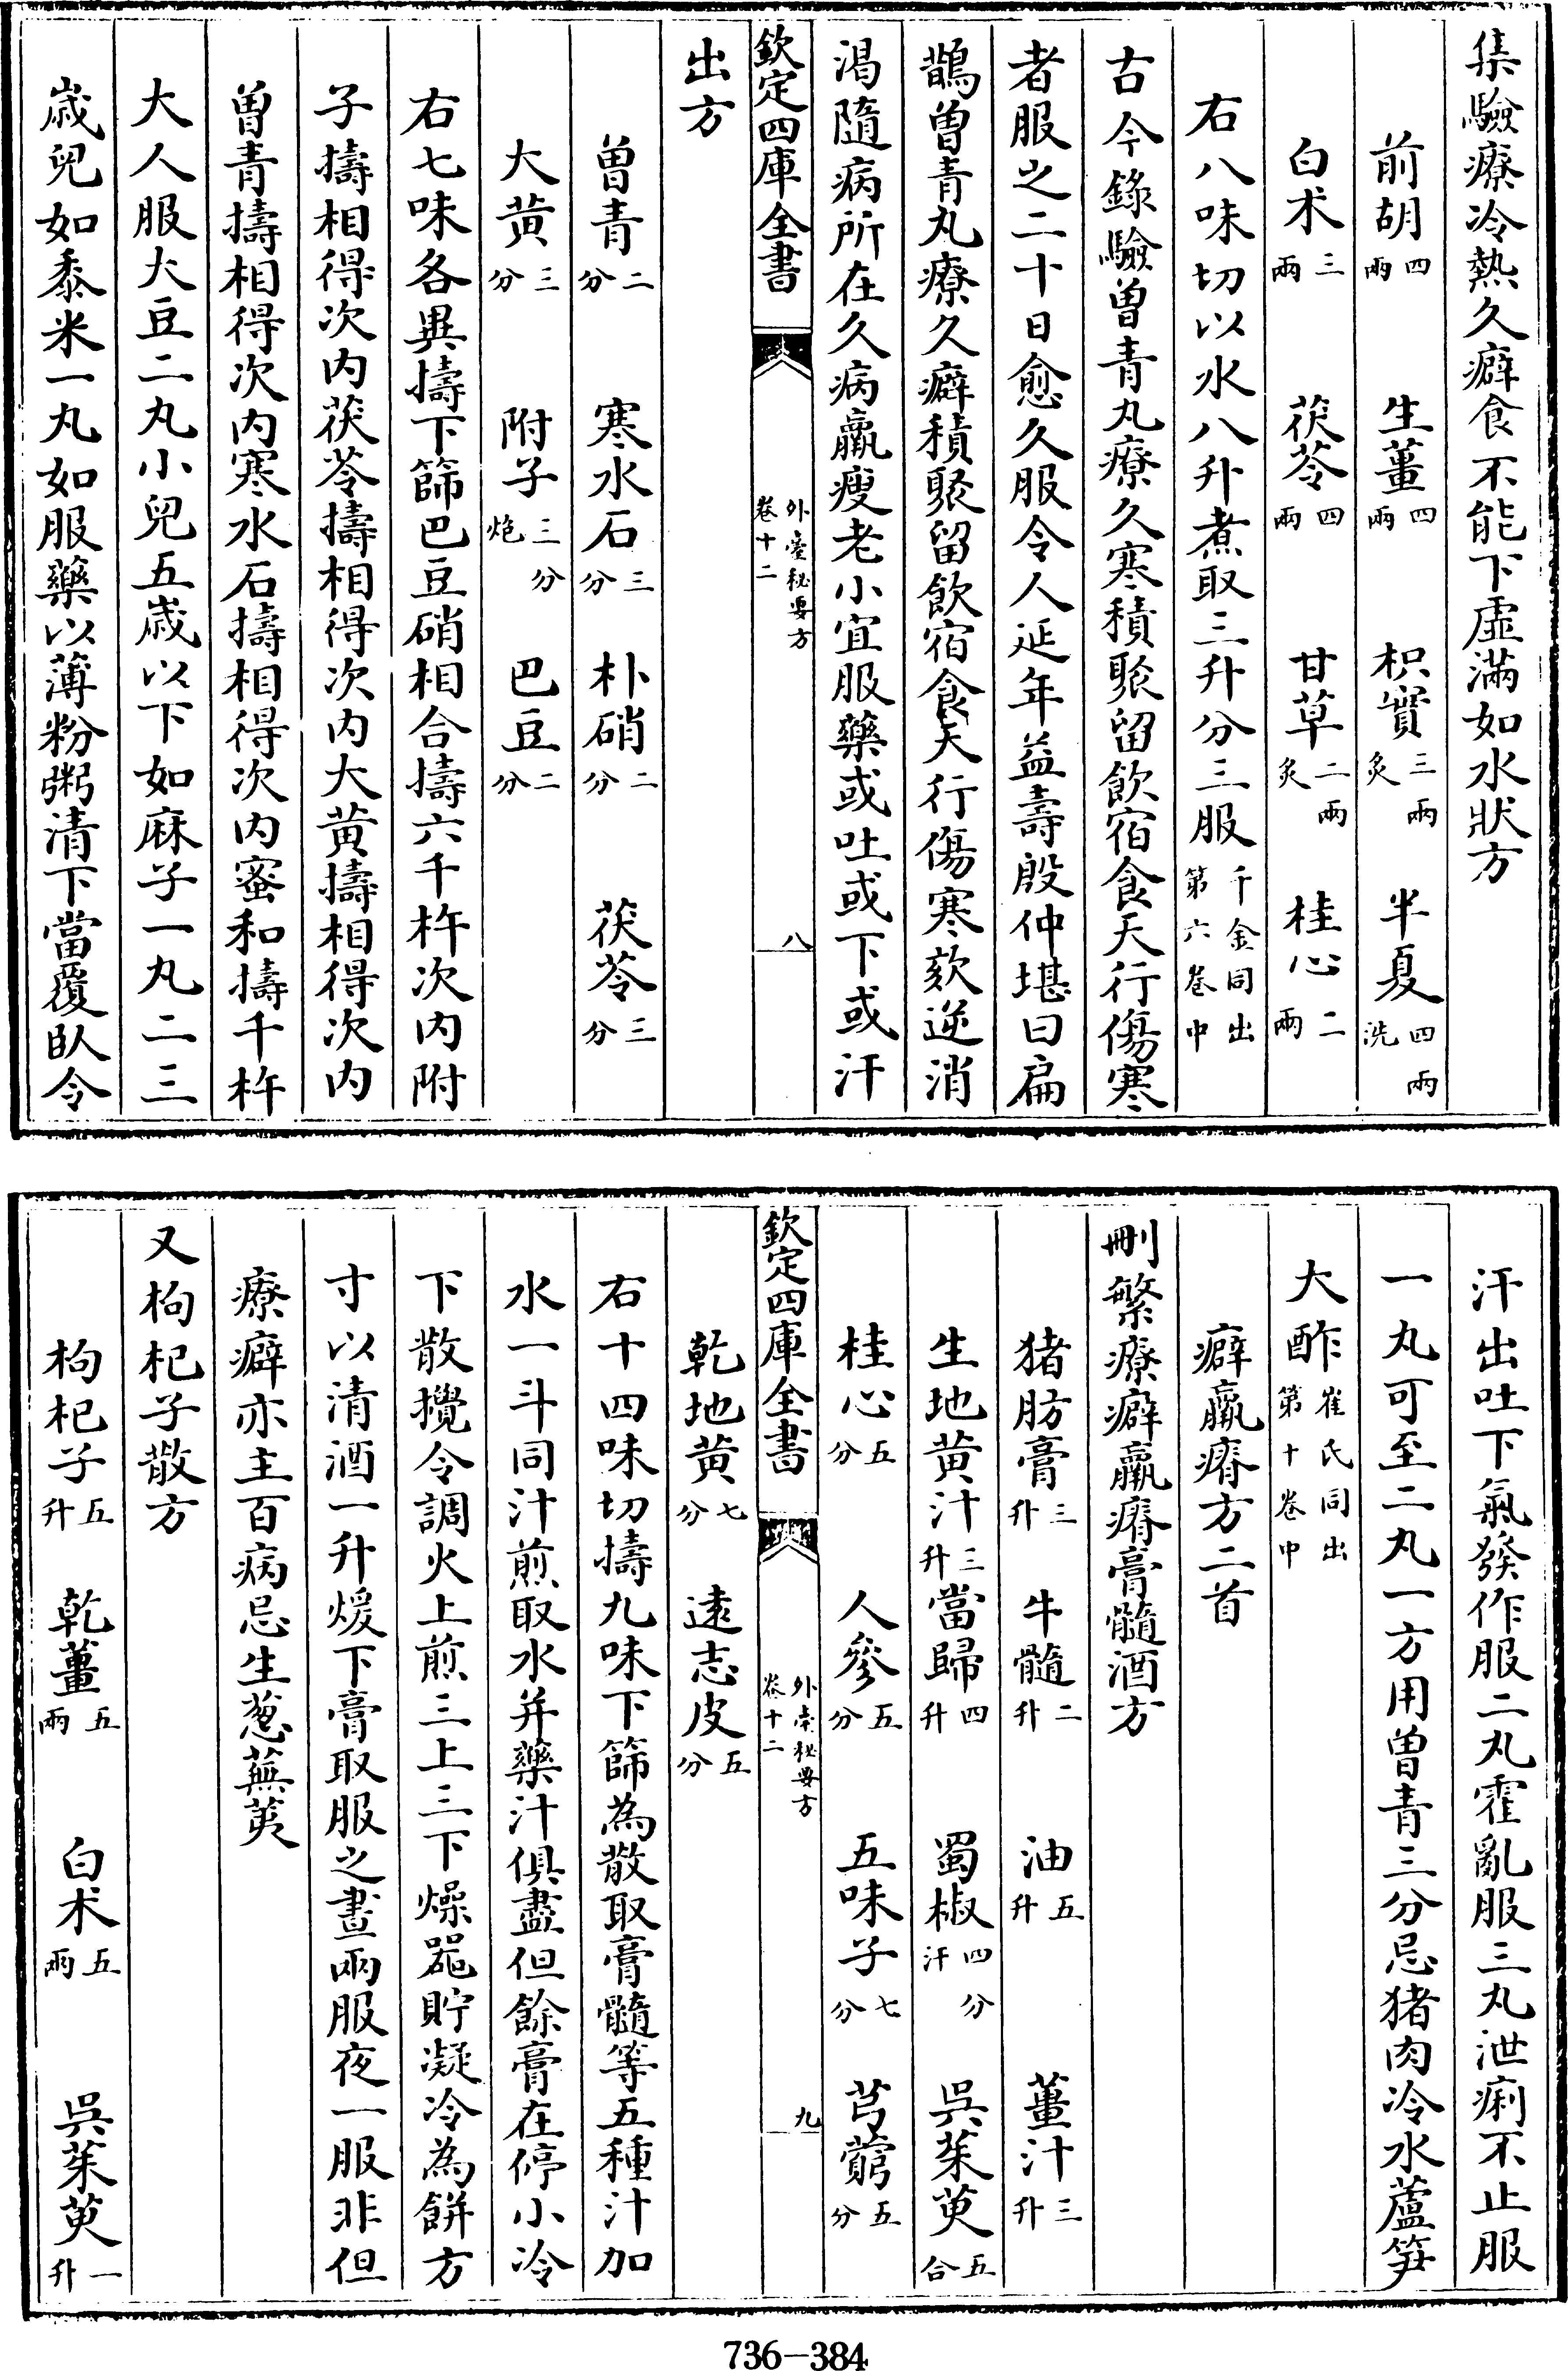 集驗療冷熱久癖食不能下虛滿如水狀方
前胡四兩 生薑四兩 枳實三兩炙 半夏四兩洗
白术三兩 茯苓四兩 甘草二兩炙 桂心二兩
右八味切以水八升煮取三升分三服千金同出第六卷中
古今錄驗曾青丸療久寒積聚留飲宿食天行傷寒
者服之二十日愈久服令人延年益壽殷仲堪曰扁
鵲曾青丸療久癖積聚留飲宿食天行傷寒欬逆消
渴隨病所在久病羸瘦老小宜服藥或吐或下或汗
欽定四庫全書 外臺秘要方卷十二 八
出方
曾青二分 寒水石三分 朴硝二分 茯苓三分
大黄三分 附子三分炮 巴豆二分
右七味各異擣下篩巴豆硝相合擣六千杵次内附
子擣相得次内茯苓擣相得次内大黄擣相得次内
曾青擣相得次内寒水石擣相得次内蜜和擣千杵
大人服大豆二丸小兒五歲以下如麻子一丸二三
歲兒如黍米一丸如服藥以薄粉粥清下當覆臥令
汗出吐下氣發作服二丸霍亂服三丸泄痢不止服
一丸可至二丸一方用曾青三分忌猪肉冷水蘆笋
大酢崔氏同出第十卷中
癖羸瘠方二首
刪繁療癖羸瘠膏髓酒方
猪肪膏三升 牛髓二升 油五升 薑汁三升
生地黄汁三升 當歸四升 蜀椒四分汗 吳茱萸五合
桂心五分 人參五分 五味子七分 芎藭五分
欽定四庫全書 外臺秘要方卷十二 九
乾地黄七分 遠志皮五分
右十四味切擣九味下篩為散取膏髓等五種汁加
水一斗同汁煎取水并藥汁俱盡但餘膏在停小冷
下散攪令調火上煎三上三下燥器貯凝冷為餅方
寸以清酒一升煖下膏取服之晝兩服夜一服非但
療癖亦主百病忌生葱蕪荑
又枸杞子散方
枸杞子五升 乾薑五兩 白术五兩 吳茱萸一升
736-384